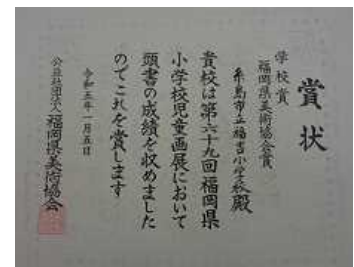 賞状
学校賞
福岡県美術協会賞
糸島市立福吉小学校殿
貴校は第六十九回福岡県
小学校児童画展において
頭書の成績を収めました
のでこれを賞します
令和五年一月五日
公益社団法人福岡県美術協会